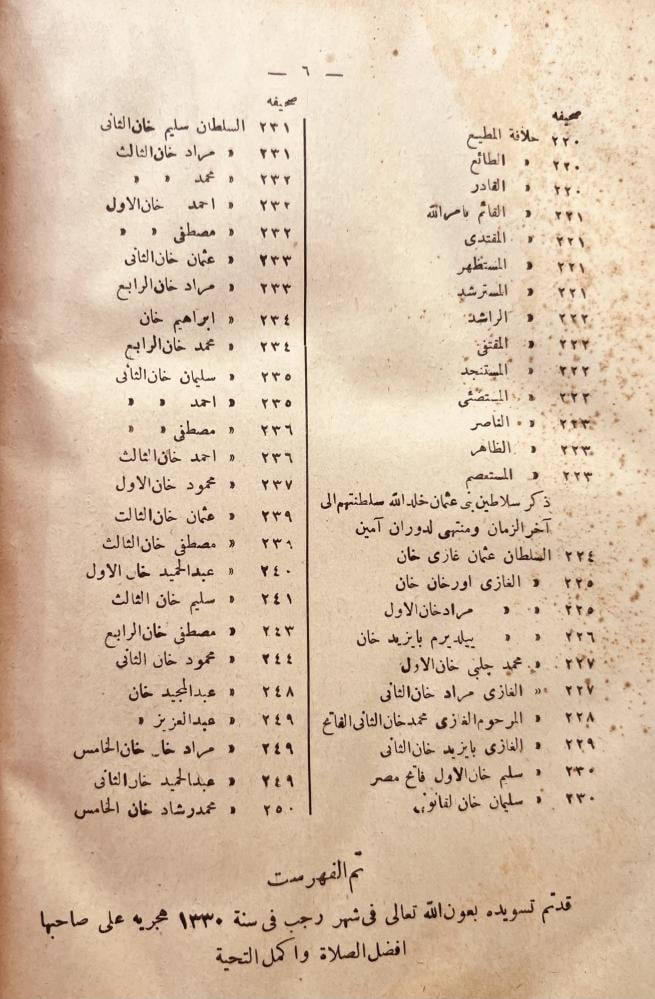 — ٦ —
صحيفه
٢٢٠ خلافة المطيع
٢٢٠ » الطائع
٢٢٠ » القادر
٢٢١ » القائم بامرالله
٢٢١ » المقتدى
٢٢١ » المستظهر
٢٢١ » المسترشد
٢٢٢ » الراشد
٢٢٢ » المقتفى
٢٢٢ » المستنجد
٢٢٢ » المستضئى
٢٢٣ » الناصر
٢٢٣ » الظاهر
٢٢٣ » المستعصم
ذكر سلاطين بنى عثمان خلد الله سلطنتهم الى
آخر الزمان ومنتهى لدوران آمين
٢٢٤ السلطان عثمان غازى خان
٢٢٥ » الغازى اورخان خان
٢٢٥ » » مرادخان الاول
٢٢٦ » » ييلديرم بايزيد خان
٢٢٧ » محمد چلبى خان الاول
٢٢٧ » الغازى مراد خان الثانى
٢٢٨ » المرحوم الغازى محمدخان الثانى الفاتح
٢٢٩ » الغازى بايزيد خان الثانى
٢٣٠ » سليم خان الاول فاتح مصر
٢٣٠ » سليمان خان لقانونى
صحيفه
٢٣١ السلطان سليم خان الثانى
٢٣١ » مراد خان الثالث
٢٣٢ » محمد » »
٢٣٢ » احمد خان الاول
٢٣٢ » مصطفى » »
٢٣٣ » عثمان خان الثانى
٢٣٣ » مراد خان الرابع
٢٣٤ » ابراهيم خان
٢٣٤ » محمد خان الرابع
٢٣٥ » سليمان خان الثانى
٢٣٥ » احمد » »
٢٣٦ » مصطفى » »
٢٣٦ » احمد خان الثالث
٢٣٧ » محمود خان الاول
٢٣٩ » عثمان خان الثالث
٢٣٩ » مصطفى خان الثالث
٢٤٠ » عبدالحميد خان الاول
٢٤١ » سليم خان الثالث
٢٤٣ » مصطفى خان الرابع
٢٤٤ » محمود خان الثانى
٢٤٨ » عبدالمجيد خان
٢٤٩ » عبدالعزيز »
٢٤٩ » مراد خان خان الخامس
٢٤٩ » عبدالحميد خان الثانى
٢٥٠ » محمدرشاد خان الخامس
تم الفهرست
قدتم تسويده بعون الله تعالى فى شهر رجب فى سنة ١٣٣٠ هجريه على صاحبها
افضل الصلاة واكمل التحية